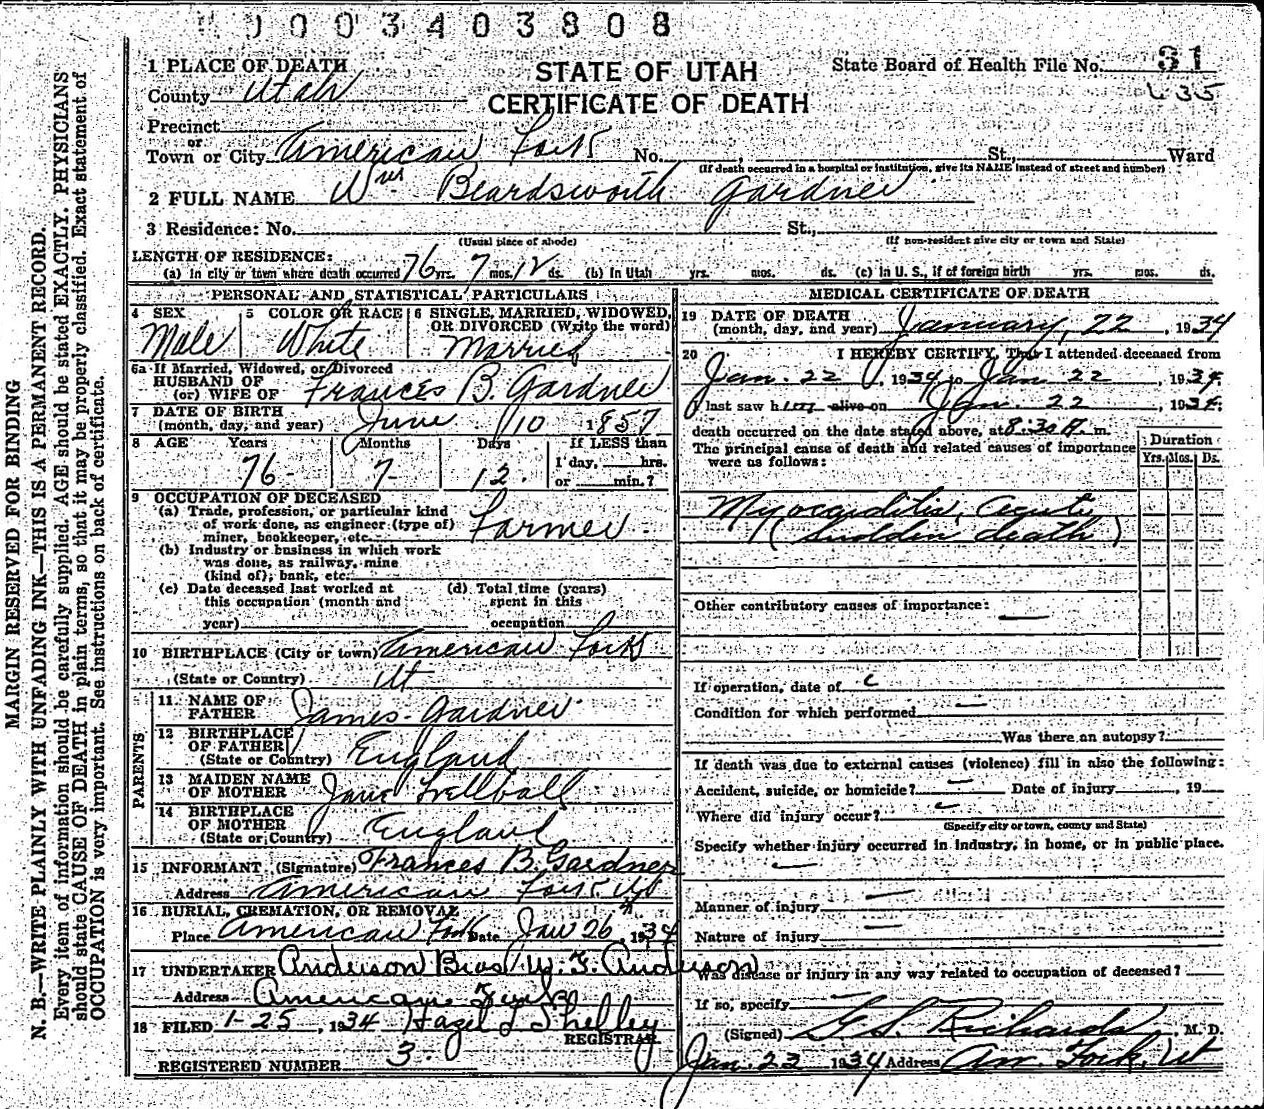 1003403808
1 PLACE OF DEATH
STATE OF UTAH
CERTIFICATE OF DEATH
State Board of Health File No. 31
435
County Utah
Precinct
or
Town or City American Fork No. , St., Ward
(If death occurred in a hospital or institution, give its NAME instead of street and number)
2 FULL NAME Wm Beardsworth Gardner
3 Residence: No. St.,
(Usual place of abode) (If non-resident give city or town and State)
LENGTH OF RESIDENCE:
(a) In city or town where death occurred 76 yrs. 7 mos. 12 ds. (b) In Utah yrs. mos. ds. (c) In U. S., if of foreign birth yrs. mos. ds.
PERSONAL AND STATISTICAL PARTICULARS
4 SEX
Male
5 COLOR OR RACE
White
6 SINGLE, MARRIED, WIDOWED,
OR DIVORCED (Write the word)
Married
6a If Married, Widowed, or Divorced
HUSBAND OF
(or) WIFE OF Frances B. Gardner
7 DATE OF BIRTH
(month, day, and year) June 10 1857
8 AGE Years Months Days If LESS than
76 7 12. 1 day, hrs.
or min.?
9 OCCUPATION OF DECEASED
(a) Trade, profession, or particular kind
of work done, as engineer (type of)
miner, bookkeeper, etc. Farmer
(b) Industry or business in which work
was done, as railway, mine
(kind of), bank, etc.
(c) Date deceased last worked at
this occupation (month and
year)
(d) Total time (years)
spent in this
occupation
10 BIRTHPLACE (City or town) American Fork
(State or Country) Ut
PARENTS
11 NAME OF
FATHER James Gardner
12 BIRTHPLACE
OF FATHER
(State or Country) England
13 MAIDEN NAME
OF MOTHER Jane
14 BIRTHPLACE
OF MOTHER
(State or Country) England
15 INFORMANT (Signature) Frances B. Gardner
Address American Fork Ut
16 BURIAL, CREMATION, OR REMOVAL
Place American Fork Date Jan 26, 1934
17 UNDERTAKER Anderson Bros/ W. F. Anderson
Address American Fork
18 FILED 1-25, 1934 Hazel L Shelley
REGISTRAR
REGISTERED NUMBER 3.
MEDICAL CERTIFICATE OF DEATH
19 DATE OF DEATH
(month, day, and year) January, 22, 1934
20 I HEREBY CERTIFY, That I attended deceased from
Jan. 22, 1934 to Jan 22, 1934.
I last saw him alive on Jan. 22, 1934.
death occurred on the date stated above, at 8:30 A. m.
The principal cause of death and related causes of importance
were as follows:
Duration
Yrs. Mos. Ds.
Myocarditis, acute
(sudden death)
Other contributory causes of importance:
If operation, date of
Condition for which performed
Was there an autopsy?
If death was due to external causes (violence) fill in also the following:
Accident, suicide, or homicide? Date of injury , 19
Where did injury occur?
(Specify city or town, county and State)
Specify whether injury occurred in industry, in home, or in public place.
Manner of injury
Nature of injury
Was disease or injury in any way related to occupation of deceased?
If so, specify
(Signed) G S. Richards, M. D.
Jan. 23 1934 Address Am. Fork, Ut
MARGIN RESERVED FOR BINDING
N. B.—WRITE PLAINLY WITH UNFADING INK—THIS IS A PERMANENT RECORD.
Every item of information should be carefully supplied. AGE should be stated EXACTLY. PHYSICIANS
should state CAUSE OF DEATH in plain terms, so that it may be properly classified. Exact statement of
OCCUPATION is very important. See instructions on back of certificate.